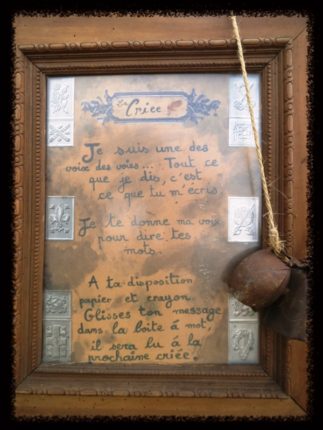 La Criée
Je suis une des
voix des voies... Tout ce
que je dis, c'est
ce que tu m'écris.
Je te donne ma voix
pour dire tes
mots.
A ta disposition
papier et crayon.
Glisses ton message
dans la boite à mot,
il sera lu à la
prochaine criée.